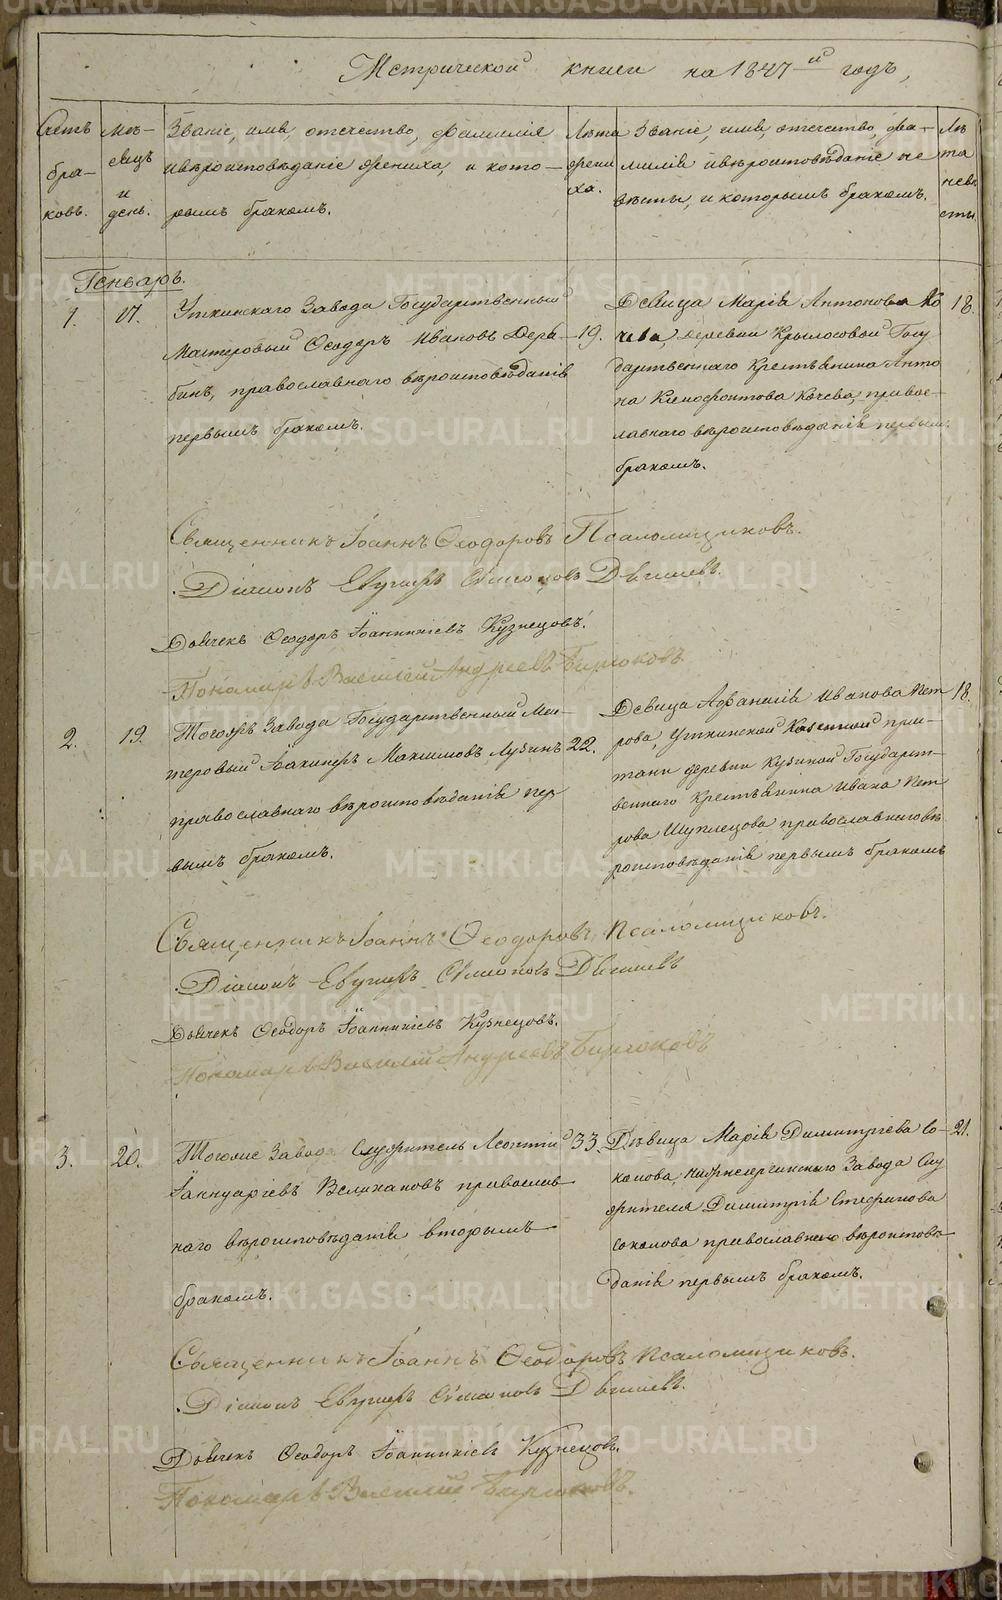 Метрической книги на 1847й годъ,
Счетъ браковъ.
Мѣсяцъ и день.
Званіе, имя, отечество, фамилія
и вѣроисповѣданіе жениха, и кото-
рымъ бракомъ.
Лѣта жениха.
Званіе, имя, отечество, фа-
милія и вѣроисповѣданіе не
вѣсты, и которымъ бракомъ.
Лѣта невѣсты.
Генварь.
1.
17.
Уткинскаго Завода Государственный
Мастеровый Ѳеодоръ Ивановъ Деря-
бинъ, православнаго вѣроисповѣданія
первымъ бракомъ.
19.
Дѣвица Марія Антонова Ко
чева, деревни Крылосовой Госу
дарственнаго Крестьянина Анто
на Ксенофонтова Кочева, правос-
лавнаго вѣроисповѣданія первым
бракомъ.
18.
Священникъ Іоаннъ Ѳеодоровъ Псаломщиковъ.
Діаконъ Симоновъ
Дьячекъ Ѳеодоръ Іоанникіевъ Кузнецовъ.
Пономарь Василій Андреевъ Бирюковъ
2.
19.
Тогожъ Завода Государственный Мас-
теровый Максимовъ Лузинъ
православнаго вѣроисповѣданія пер
вымъ бракомъ.
22.
Дѣвица Афанасія Иванова Пет
рова, Уткинской Казенной при-
стани деревни Кузиной Государст-
веннаго Крестьянина Ивана Пет
рова Шуплецова православнаго вѣ
роисповѣданія первымъ бракомъ
18.
Священникъ Іоаннъ Ѳеодоровъ Псаломщиковъ.
Діаконъ Симоновъ
Дьячекъ Ѳеодоръ Іоанникіевъ Кузнецовъ.
Пономарь Василій Андреевъ Бирюковъ
3.
20.
Тогоже Завода Служитель Леонтій
Іаннуаріевъ Великановъ православ
наго вѣроисповѣданія вторымъ
бракомъ.
33.
Дѣвица Марія Димитріева Со-
колова, Нижнесергинскаго Завода Слу
жителя Димитрія Стефанова
Соколова православнаго вѣроисповѣ
данія первымъ бракомъ.
21.
Священникъ Іоаннъ Ѳеодоровъ Псаломщиковъ.
Діаконъ Симоновъ
Дьячекъ Ѳеодоръ Іоанникіевъ Кузнецовъ.
Пономарь Василій Бирюковъ.
METRIKI.GASO-URAL.RU